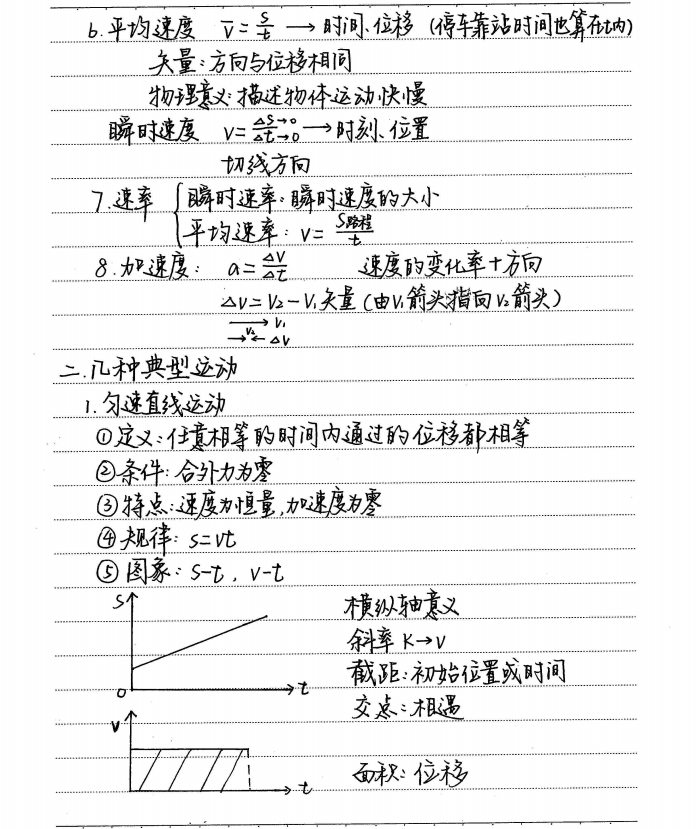 6.平均速度 v̄=s/t → 时间、位移 (停车靠站时间也算在t内)
矢量:方向与位移相同
物理意义:描述物体运动快慢
瞬时速度 v=Δs→0/Δt→0 → 时刻、位置
切线方向
7.速率 { 瞬时速率:瞬时速度的大小
平均速率: v=s路程/t
8.加速度: a=Δv/Δt 速度的变化率+方向
Δv=v₂-v₁矢量(由v₁箭头指向v₂箭头)
v₁
v₂ Δv
二.几种典型运动
1.匀速直线运动
①定义:任意相等的时间内通过的位移都相等
②条件:合外力为零
③特点:速度为恒量,加速度为零
④规律: s=vt
⑤图象: s-t, v-t
s 横纵轴意义
斜率 K→v
截距:初始位置或时间
0 t
交点:相遇
v
面积:位移
t